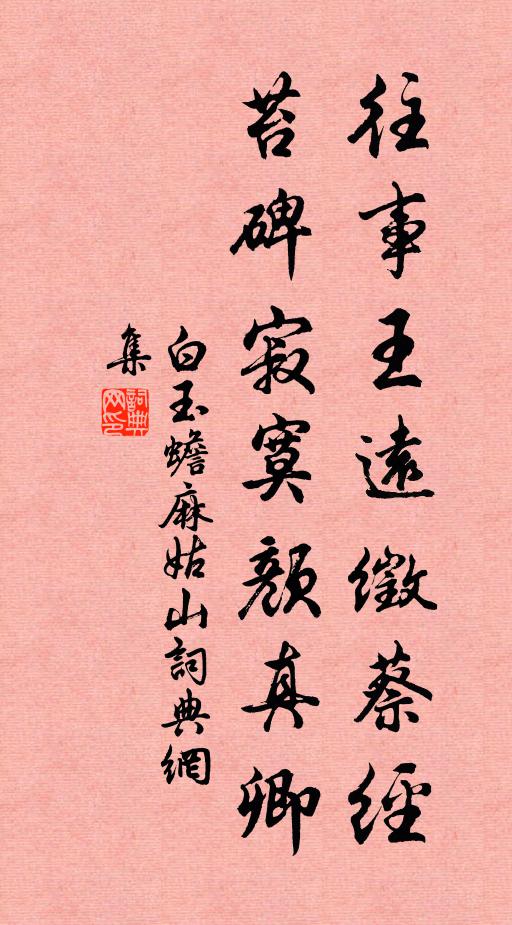 往事王遠徵蔡經
苔碑寂寞顏真卿
白玉蟾麻姑山詞典網
集
詞典
网印